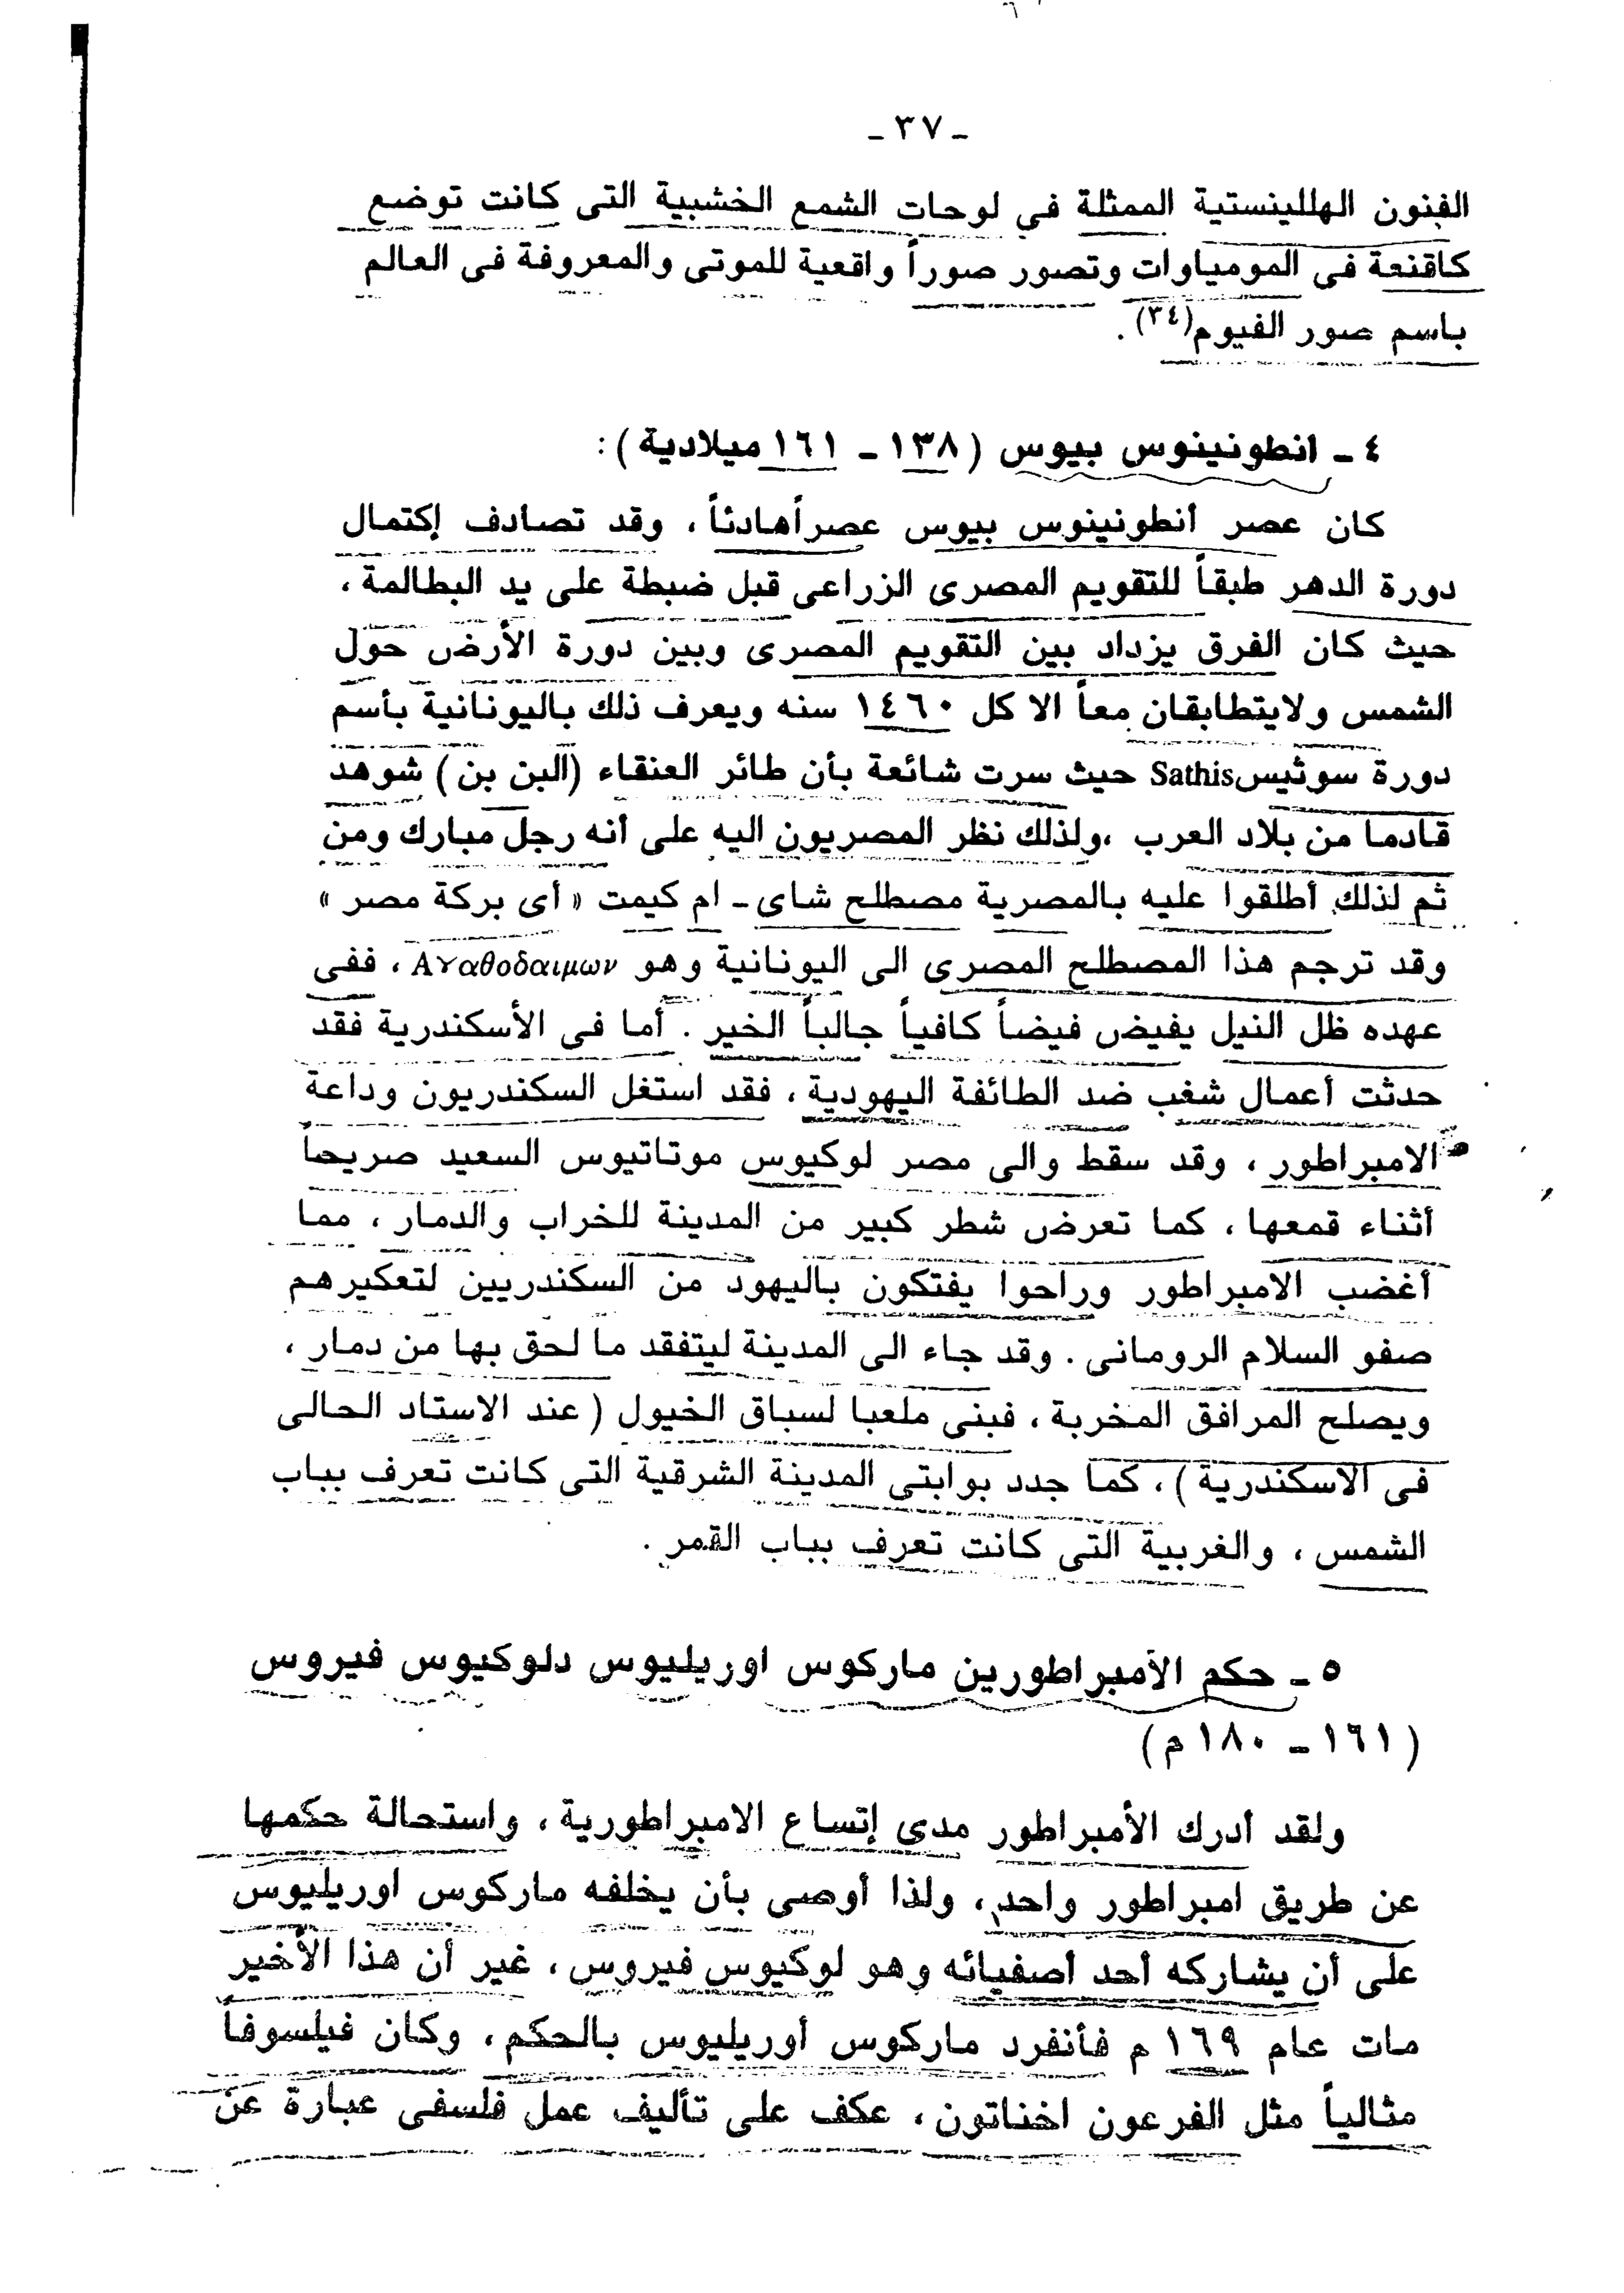 - ٣٧ -
الفنون الهللينستية الممثلة في لوحات الشمع الخشبية التى كانت توضع
كاقنعة فى المومياوات وتصور صوراً واقعية للموتى والمعروفة فى العالم
باسم صور الفيوم(٣٤) .
٤ - انطونينوس بيوس ( ١٣٨ - ١٦١ ميلادية ) :
كان عصر أنطونينوس بيوس عصراًهادئاً ، وقد تصادف إكتمال
دورة الدهر طبقاً للتقويم المصرى الزراعى قبل ضبطة على يد البطالمة ،
حيث كان الفرق يزداد بين التقويم المصرى وبين دورة الأرض حول
الشمس ولايتطابقان معاً الا كل ١٤٦٠ سنه ويعرف ذلك باليونانية بأسم
دورة سوثيسSathis حيث سرت شائعة بأن طائر العنقاء (البن بن ) شوهد
قادما من بلاد العرب ،ولذلك نظر المصريون اليه على أنه رجل مبارك ومن
ثم لذلك أطلقوا عليه بالمصرية مصطلح شاى - ام كيمت « أى بركة مصر »
وقد ترجم هذا المصطلح المصرى الى اليونانية وهو Αγαθοδαιμων ، ففى
عهده ظل النيل يفيض فيضاً كافياً جالباً الخير . أما فى الأسكندرية فقد
حدثت أعمال شغب ضد الطائفة اليهودية ، فقد استغل السكندريون وداعة
الامبراطور ، وقد سقط والى مصر لوكيوس موتاتيوس السعيد صريحاً
أثناء قمعها ، كما تعرض شطر كبير من المدينة للخراب والدمار ، مما
أغضب الامبراطور وراحوا يفتكون باليهود من السكندريين لتعكيرهم
صفو السلام الرومانى . وقد جاء الى المدينة ليتفقد ما لحق بها من دمار ،
ويصلح المرافق المخربة ، فبنى ملعبا لسباق الخيول ( عند الاستاد الحالى
فى الاسكندرية ) ، كما جدد بوابتى المدينة الشرقية التى كانت تعرف بباب
الشمس ، والغربية التى كانت تعرف بباب القمر .
٥ - حكم الأمبراطورين ماركوس اوريليوس دلوكيوس فيروس
( ١٦١ - ١٨٠ م )
ولقد أدرك الأمبراطور مدى إتساع الامبراطورية ، واستحالة حكمها
عن طريق امبراطور واحد ، ولذا أوصى بأن يخلفه ماركوس اوريليوس
على أن يشاركه أحد أصفيائه وهو لوكيوس فيروس ، غير أن هذا الأخير
مات عام ١٦٩ م فأنفرد ماركوس أوريليوس بالحكم ، وكان فيلسوفاً
مثالياً مثل الفرعون اخناتون ، عكف على تأليف عمل فلسفى عبارة عن